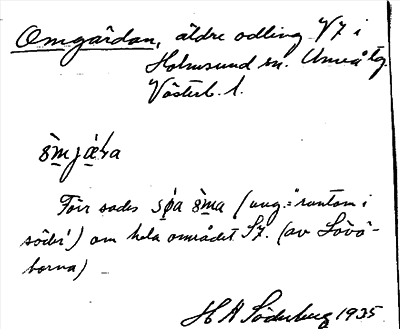 Omgärdan, äldre odling V7 i
Holmsund sn. Umeå tg.
Västerb. l.
Förr sades søa (ung. = runtom i
söder) om hela området S7. (av Lövö-
borna)
H A Söderberg 1935